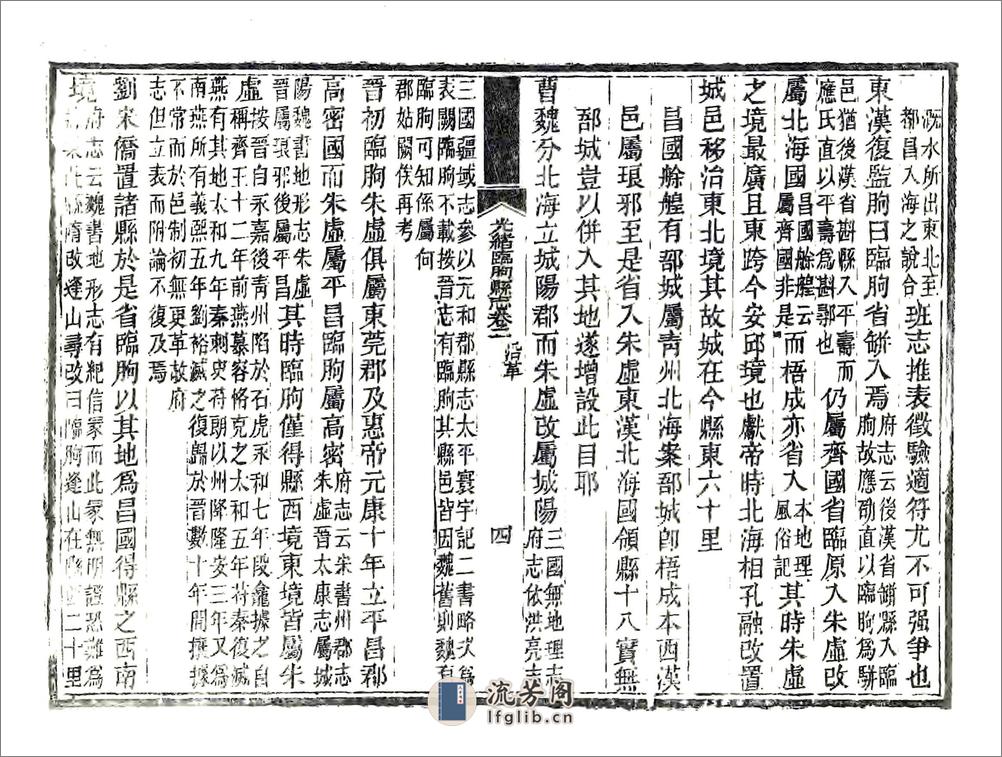 溉水所出東北至
都昌入海之說合班志推表徵驗適符尤不可强爭也
東漢復監朐曰臨朐省郱入焉府志云後漢省郱縣入臨
朐故應劭直以臨朐爲駢
邑猶後漢省斟縣入平壽而
應氏直以平壽爲斟鄩也仍屬齊國省臨原入朱虛改
屬北海國昌國艅艎云
屬齊國非是而梧成亦省入本地理
風俗記其時朱虛
之境最廣且東跨今安邱境也獻帝時北海相孔融改置
城邑移治東北境其故城在今縣東六十里
昌國艅艎有郚城屬青州北海案郚城卽梧成本西漢
邑屬琅邪至是省入朱虛東漢北海國領縣十八實無
郚城豈以併入其地遂增設此目耶
曹魏分北海立城陽郡而朱虛改屬城陽三國無地理志
府志依洪亮志
光緒臨朐縣志卷二 沿革 四
三國疆域志參以元和郡縣志太平寰宇記二書略式爲
表闕臨朐不載按晉志有臨朐其縣邑皆因魏舊則魏有
臨朐可知係屬何
郡姑闕俟再考
晉初臨朐朱虛俱屬東莞郡及惠帝元康十年立平昌郡
高密國而朱虛屬平昌臨朐屬高密府志云宋書州郡志
朱虛晉太康志屬城
陽魏書地形志朱虛
晉屬琅邪後屬平昌其時臨朐僅得縣西境東境皆屬朱
虛按晉自永嘉後青州陷於石虎永和七年段龕據之自
稱齊王十二年前燕慕容恪克之太和五年苻秦復滅
燕有其地太和九年秦刺史苻朗以州降隆安三年又爲
南燕所有義熙五年劉裕滅之復歸於晉數十年間攘據
不常而於邑制初無更革故府
志但立表而附論不復及焉
劉宋僑置諸縣於是省臨朐以其地爲昌國得縣之西南
境府志云魏書地形志有紀信冢而此冢無明證恐難爲
縣隋改逢山尋改曰臨朐逢山在縣西二十里
流芳阁
lfglib.cn